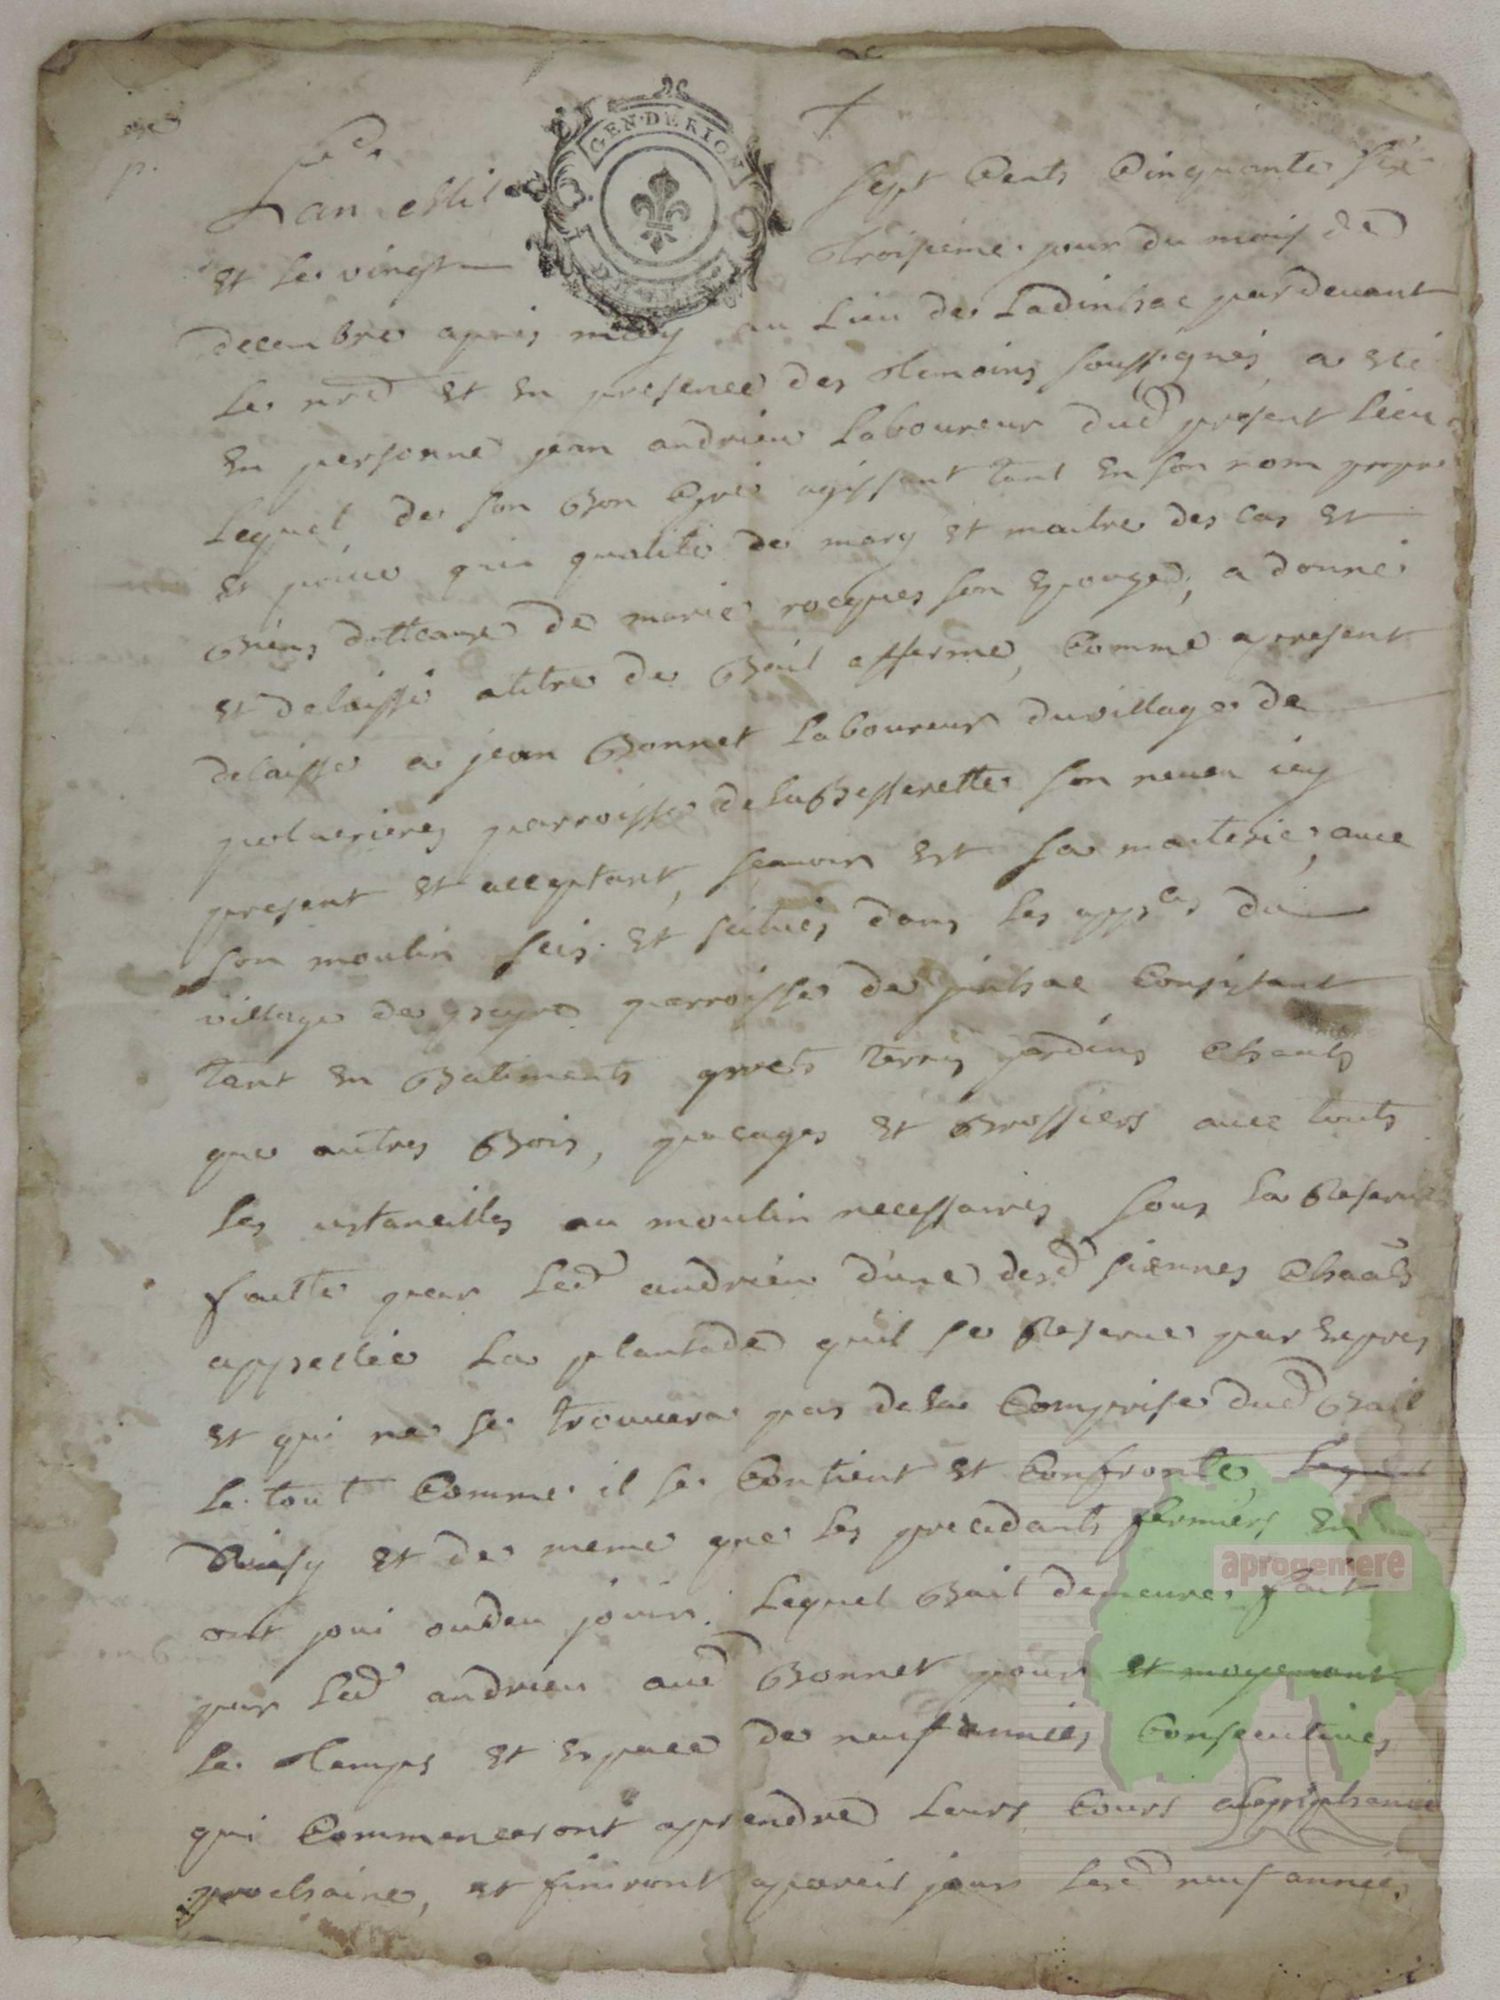 GEN·DE RION
L'an mil sept Cents Cinquante six
et le vingt troisieme jour du mois de
decembre apres midy au Lieu de Ladinhac pardevant
le nre et en presence des temoins soussignés, a été
en personne jean andrieu Laboureur dud present lieu
Lequel de son bon gré agissant tant en son nom propre
et privé qu'en qualité de mary et maitre des cas et
biens dotteaux de marie rocques son epouze, a donné
et delaissé a titre de bail afferme, Comme a present
delaisse a jean Bonnet Laboureur du village de
polverieres parroisse de labesserette son neveu icy
present et acceptant, scavoir est sa materie, avec
son moulin scis et scitués dans les app.ces du
village de parroisse de junhac Consistant
tant en Batiments prets terres jardins Chauls
que autres Bois, pacages et Brossiers avec touts
les ustancilles au moulin necessaires sous la Reserve
faitte par led andrieu d'une desd siennes Chauls
appellée La plantade qu'il se Reserve par Expres
et qui ne se trouvera pas de la Comprise dud Bail
le tout Comme il se Contient et Confronte, Lequel
Ainsy et de meme que les precedants fermiers en
ont joui ou deu jouir. Lequel Bail demeure fait
par led andrieu aud Bonnet pour et moyenant
le temps et espace de neuf années Consecutives
qui Commenceront a prendre leurs Cours a l'epiphanie
prochaine, et finiront a pareil jour lesd neuf années
aprogemere